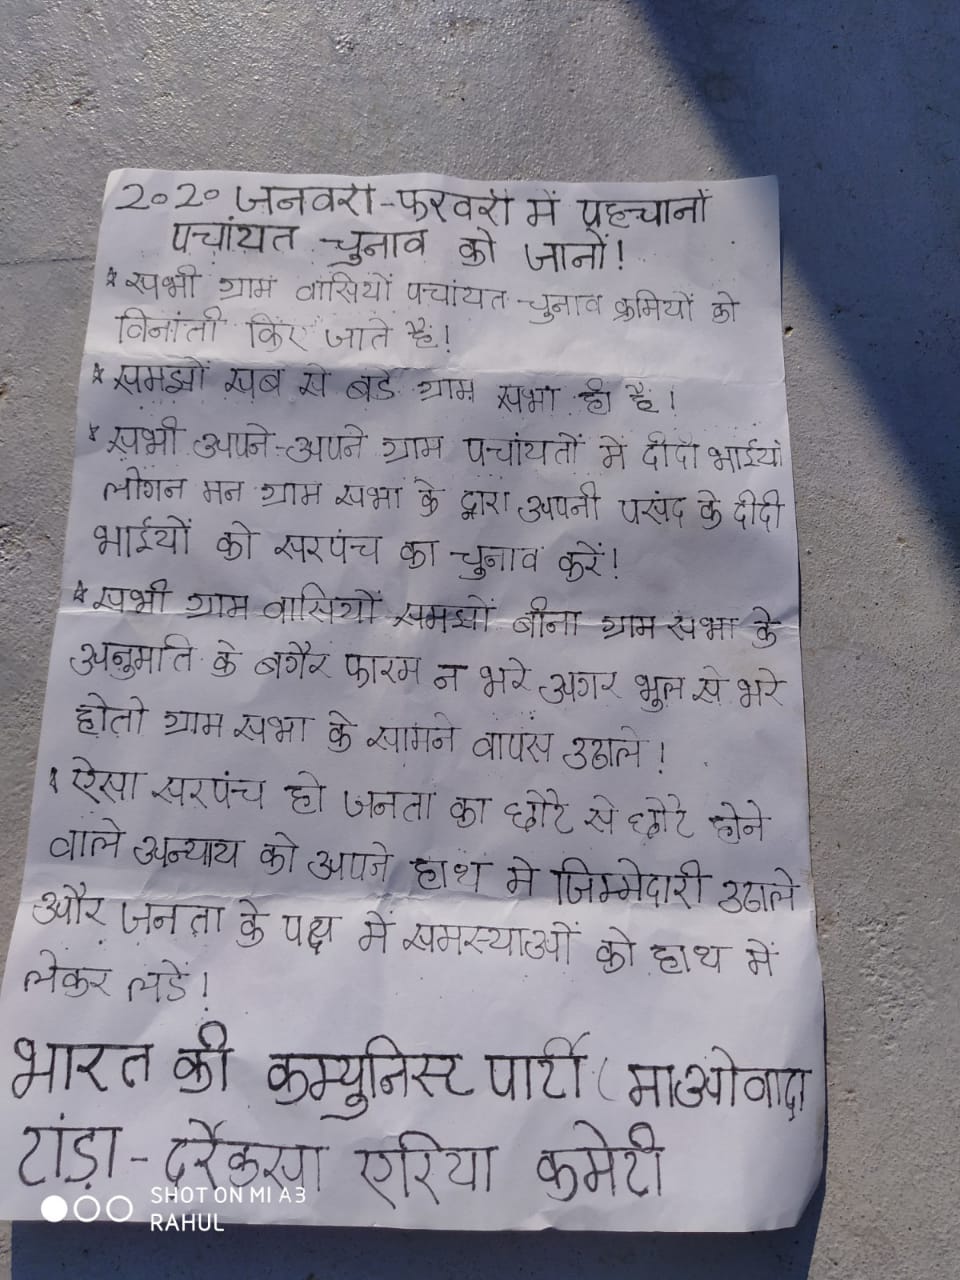 2020 जनवरी-फरवरी में पहचानों
पचांयत चुनाव को जानों!
* सभी ग्राम वासियों पचांयत चुनाव क्रमियों को
विनांती किए जाते है!
* समझों सब से बडे ग्राम सभा ही है!
* सभी अपने-अपने ग्राम पचांयतों मे दीदी भाईयों
लोगन मन ग्राम सभा के द्वारा अपनी पसंद के दीदी
भाईयों को सरपंच का चुनाव करें!
* सभी ग्राम वासियों समझों बीना ग्राम सभा के
अनुमति के बगैर फारम न भरे अगर भुल से भरे
होतो ग्राम सभा के सामने वापस उठाले!
* ऐसा सरपंच हो जनता का छोटे से छोटे होने
वाले अन्याय को अपने हाथ मे जिम्मेदारी उठाले
और जनता के पक्ष में समस्याओं को हाथ में
लेकर लडें!
भारत की कम्युनिस्ट पार्टी (माओवादी
टांड़ा-दरैकसा एरिया कमेटी
SHOT ON MI A3
RAHUL